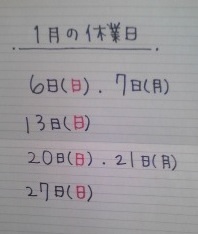 1月の休業日
6日(日)．7日(月)
13日(日)
20日(日)．21日(月)
27日(日)